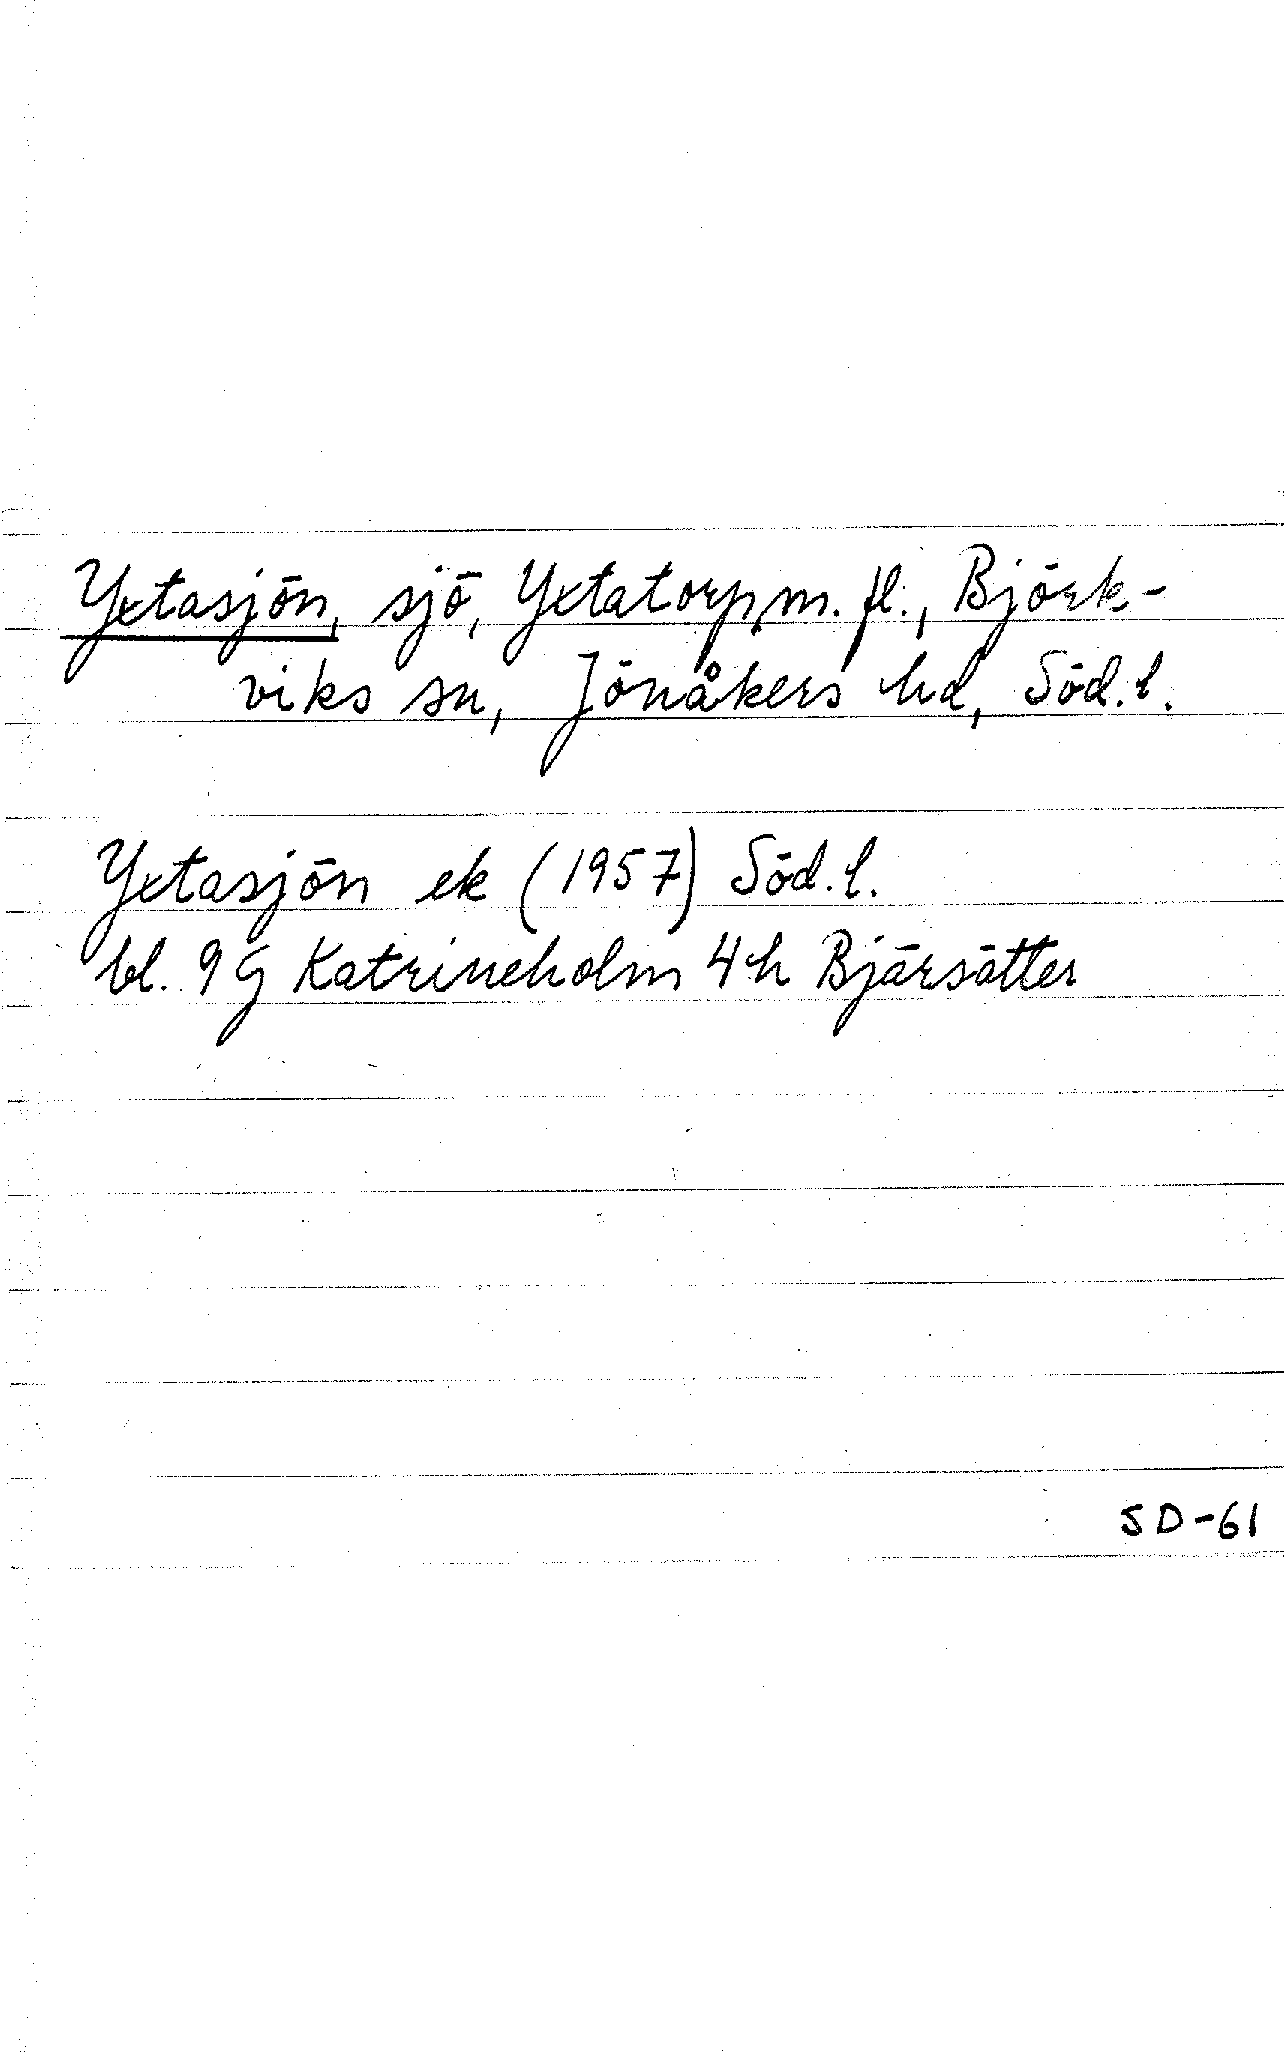 Yxtasjön, sjö, Yxtatorp m. fl., Björk-
viks sn, Jönåkers hd, Söd. l.
Yxtasjön ek (1957) Söd. l.
bl. 9G Katrineholm 4h Bjärsätter
SD-61